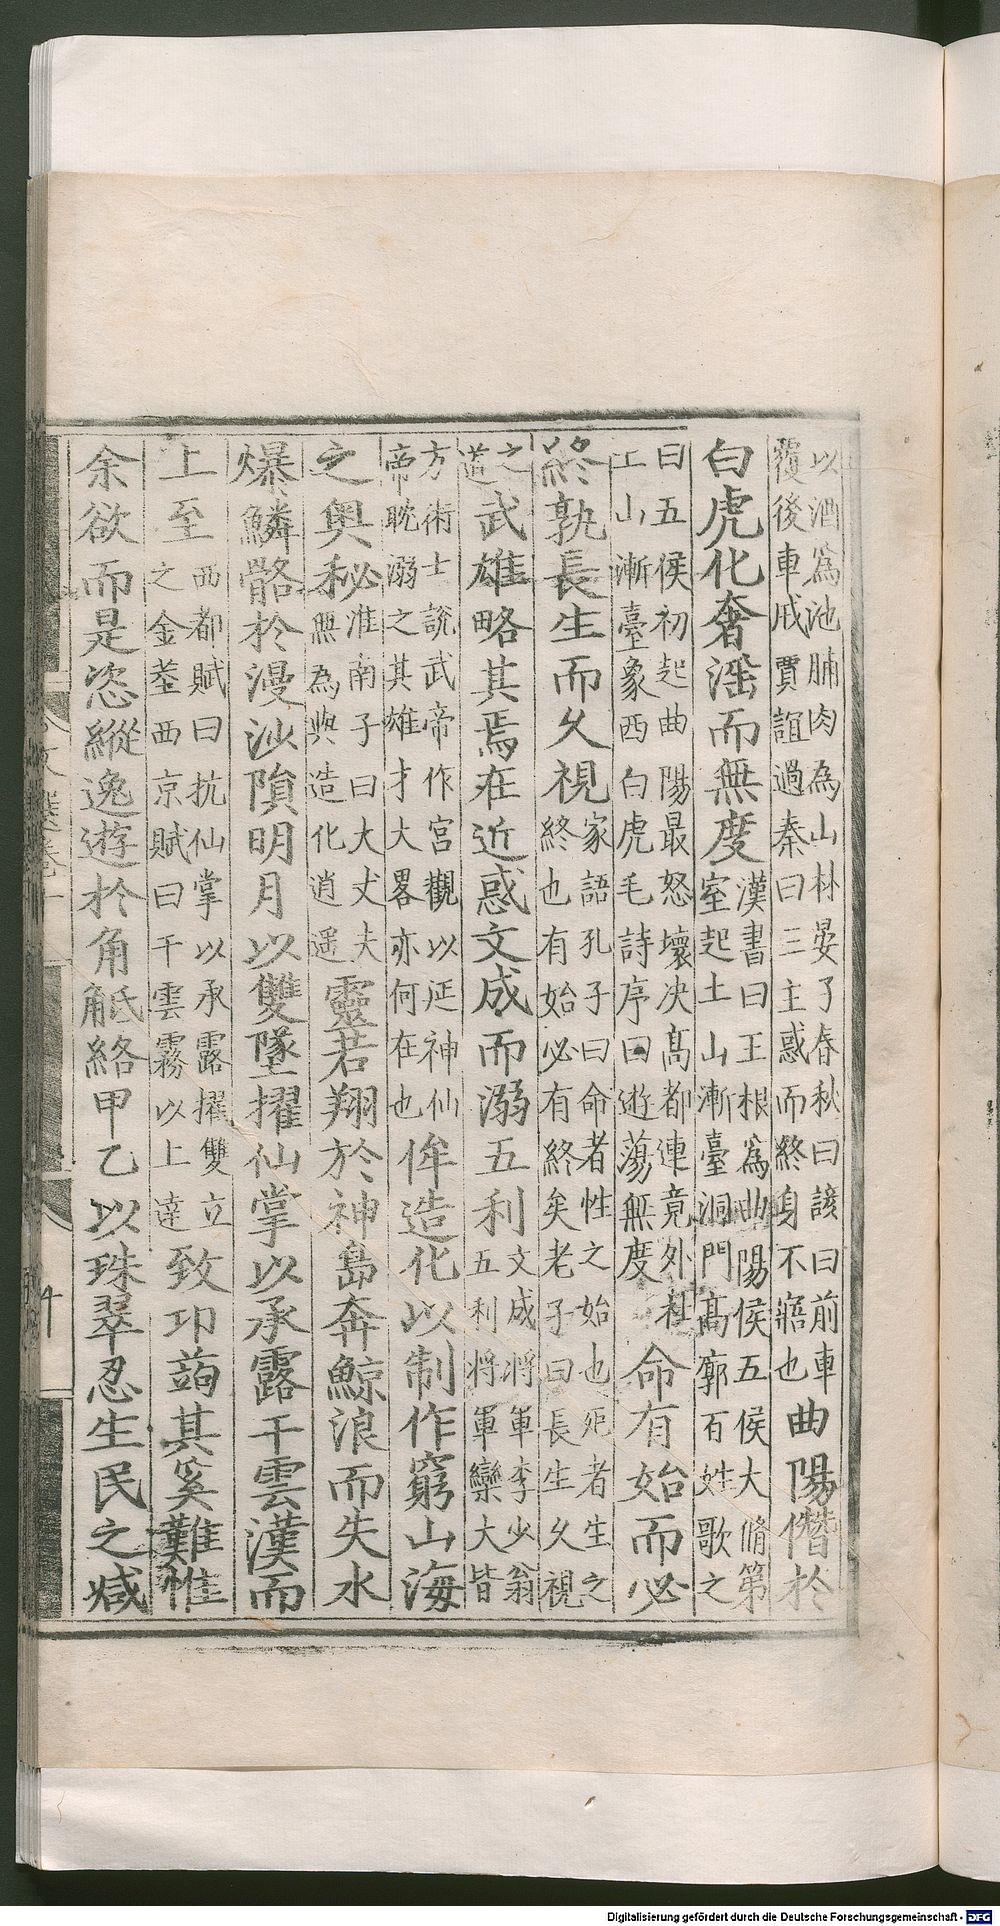 以酒爲池脯肉為山林晏子春秋曰諺曰前車
覆後車戒賈誼過秦曰三主惑而終身不寤也曲陽僭於
白虎化奢滛而無度漢書曰王根爲曲陽侯五侯大脩第
室起土山漸臺洞門高廓百姓歌之
曰五侯初起曲陽最怒壞决高都連竟外杜
土山漸臺象西白虎毛詩序曰遊蕩無度命有始而必
終孰長生而乆視家語孔子曰命者性之始也死者生之
終也有始必有終矣老子曰長生乆視
之
道武雄略其焉在近惑文成而溺五利文成將軍李少翁
五利將軍欒大皆
方術士說武帝作宮觀以延神仙
帝耽溺之其雄才大畧亦何在也侔造化以制作窮山海
之奥秘淮南子曰大丈夫
無為與造化逍遥靈若翔於神島奔鯨浪而失水
爆鱗骼於漫沙隕明月以雙墜擢仙掌以承露干雲漢而
上至西都賦曰抗仙掌以承露擢雙立
之金莖西京賦曰干雲霧以上達致卭蒟其奚難惟
余欲而是恣縱逸遊於角觝絡甲乙以珠翠忍生民之㓕
文選卷十
Digitalisierung gefördert durch die Deutsche Forschungsgemeinschaft - DFG